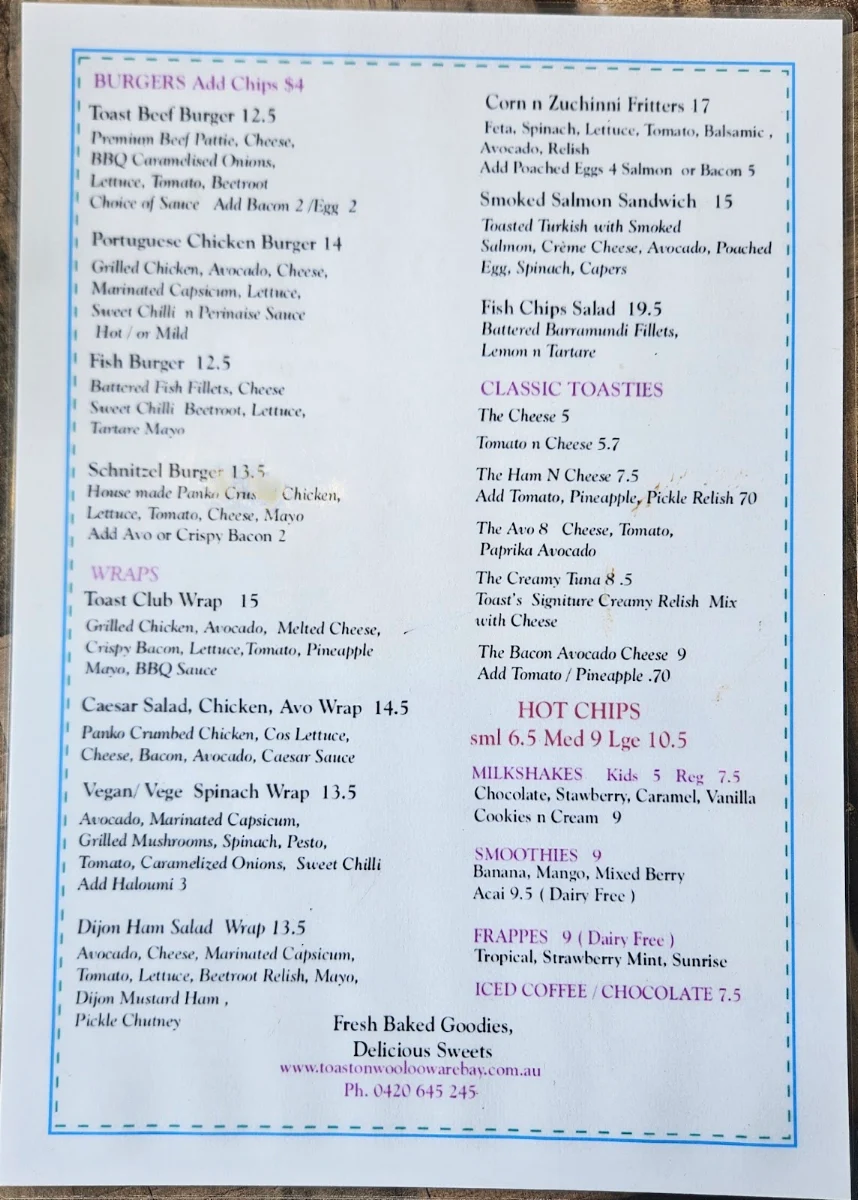 BURGERS Add Chips $4
Toast Beef Burger 12.5
Premium Beef Pattie, Cheese,
BBQ Caramelised Onions,
Lettuce, Tomato, Beetroot
Choice of Sauce Add Bacon 2 /Egg 2
Portuguese Chicken Burger 14
Grilled Chicken, Avocado, Cheese,
Marinated Capsicum, Lettuce,
Sweet Chilli n Perinaise Sauce
Hot / or Mild
Fish Burger 12.5
Battered Fish Fillets, Cheese
Sweet Chilli Beetroot, Lettuce,
Tartare Mayo
Schnitzel Burger 13.5
House made Panko Crus Chicken,
Lettuce, Tomato, Cheese, Mayo
Add Avo or Crispy Bacon 2
WRAPS
Toast Club Wrap 15
Grilled Chicken, Avocado, Melted Cheese,
Crispy Bacon, Lettuce, Tomato, Pineapple
Mayo, BBQ Sauce
Caesar Salad, Chicken, Avo Wrap 14.5
Panko Crumbed Chicken, Cos Lettuce,
Cheese, Bacon, Avocado, Caesar Sauce
Vegan/ Vege Spinach Wrap 13.5
Avocado, Marinated Capsicum,
Grilled Mushrooms, Spinach, Pesto,
Tomato, Caramelized Onions, Sweet Chilli
Add Haloumi 3
Dijon Ham Salad Wrap 13.5
Avocado, Cheese, Marinated Capsicum,
Tomato, Lettuce, Beetroot Relish, Mayo,
Dijon Mustard Ham ,
Pickle Chutney
Corn n Zuchinni Fritters 17
Feta, Spinach, Lettuce, Tomato, Balsamic ,
Avocado, Relish
Add Poached Eggs 4 Salmon or Bacon 5
Smoked Salmon Sandwich 15
Toasted Turkish with Smoked
Salmon, Crème Cheese, Avocado, Poached
Egg, Spinach, Capers
Fish Chips Salad 19.5
Battered Barramundi Fillets,
Lemon n Tartare
CLASSIC TOASTIES
The Cheese 5
Tomato n Cheese 5.7
The Ham N Cheese 7.5
Add Tomato, Pineapple, Pickle Relish 70
The Avo 8 Cheese, Tomato,
Paprika Avocado
The Creamy Tuna 8 .5
Toast's Signiture Creamy Relish Mix
with Cheese
The Bacon Avocado Cheese 9
Add Tomato / Pineapple .70
HOT CHIPS
sml 6.5 Med 9 Lge 10.5
MILKSHAKES Kids 5 Reg 7.5
Chocolate, Stawberry, Caramel, Vanilla
Cookies n Cream 9
SMOOTHIES 9
Banana, Mango, Mixed Berry
Acai 9.5 ( Dairy Free )
FRAPPES 9 ( Dairy Free )
Tropical, Strawberry Mint, Sunrise
ICED COFFEE / CHOCOLATE 7.5
Fresh Baked Goodies,
Delicious Sweets
www.toastonwooloowarebay.com.au
Ph. 0420 645 245